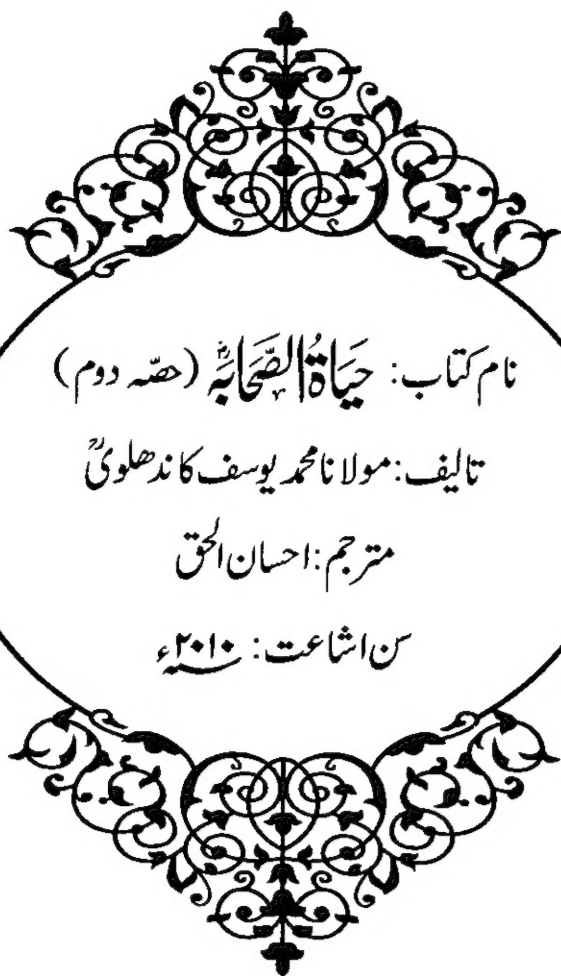 نام کتاب: حَیَاۃُ الصَّحَابَہؓ (حصّہ دوم)
تالیف: مولانا محمد یوسف کاندھلویؒ
مترجم: احسان الحق
سن اشاعت: ۲۰۱۰ء